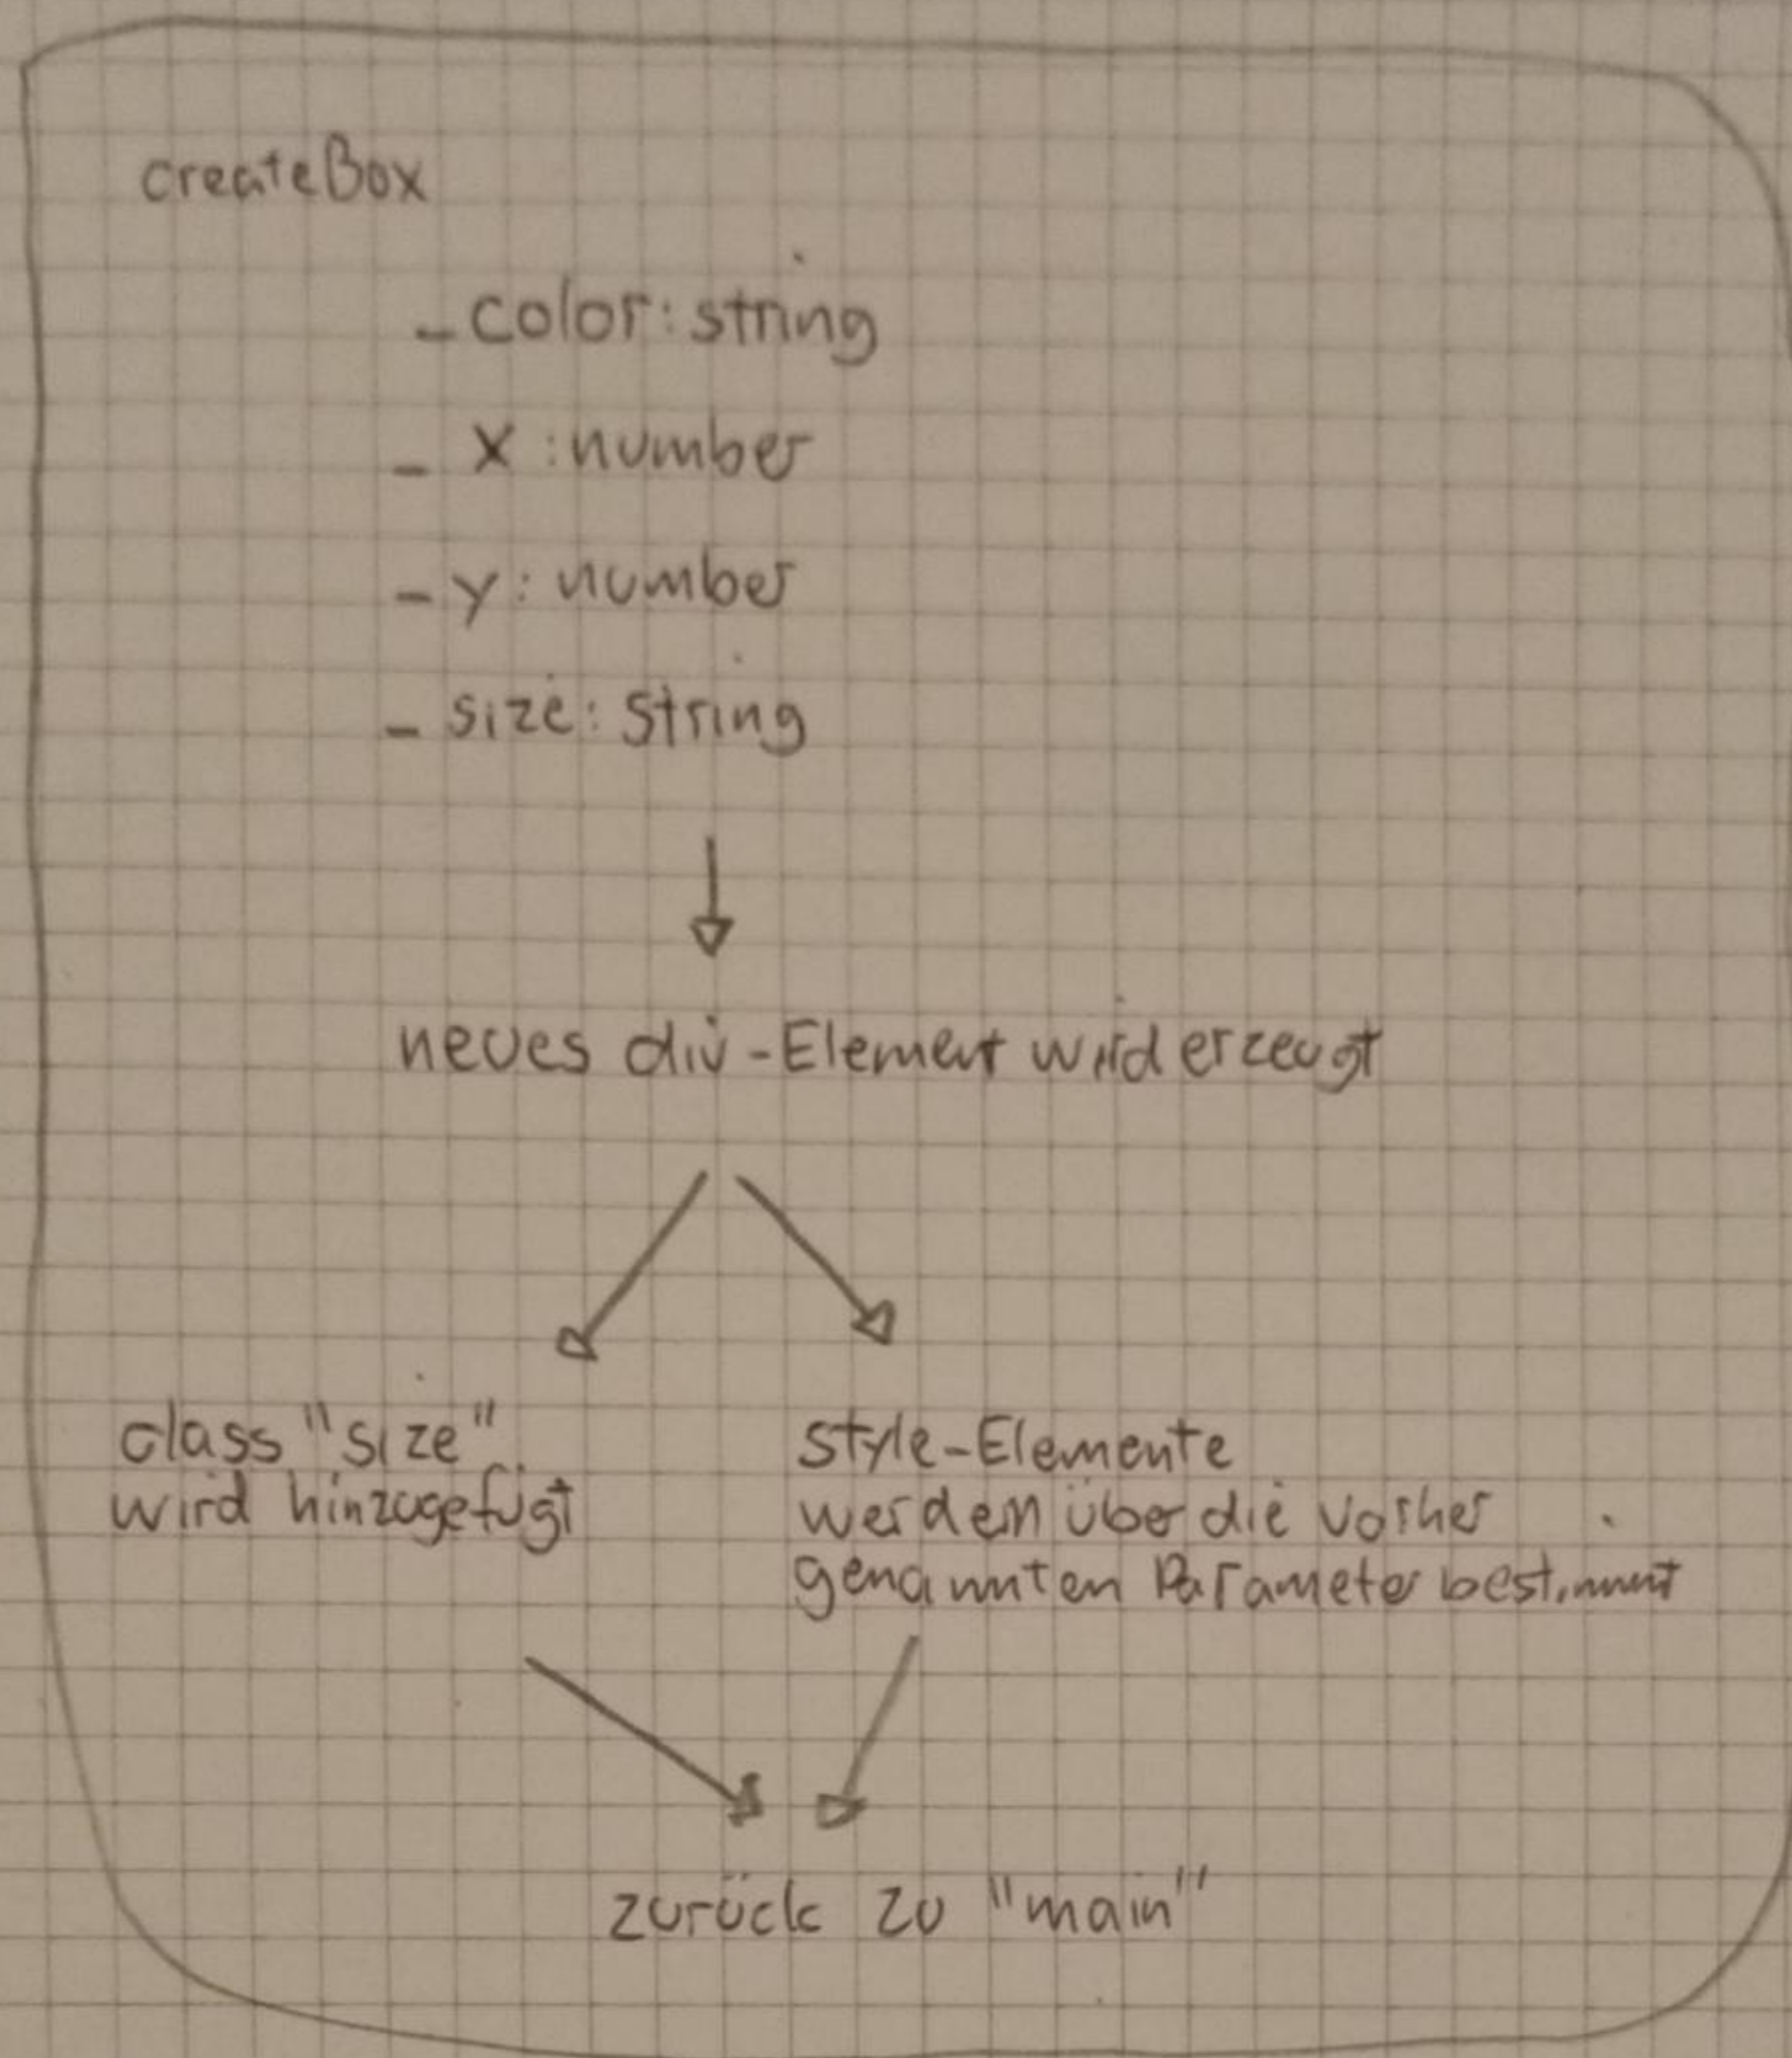 createBox
- color: string
- x: number
- y: number
- size: string
neues div-Element wird erzeugt
class "size"
wird hinzugefügt
style-Elemente
werden über die vorher
genannten Parameter bestimmt
zurück zu "main"